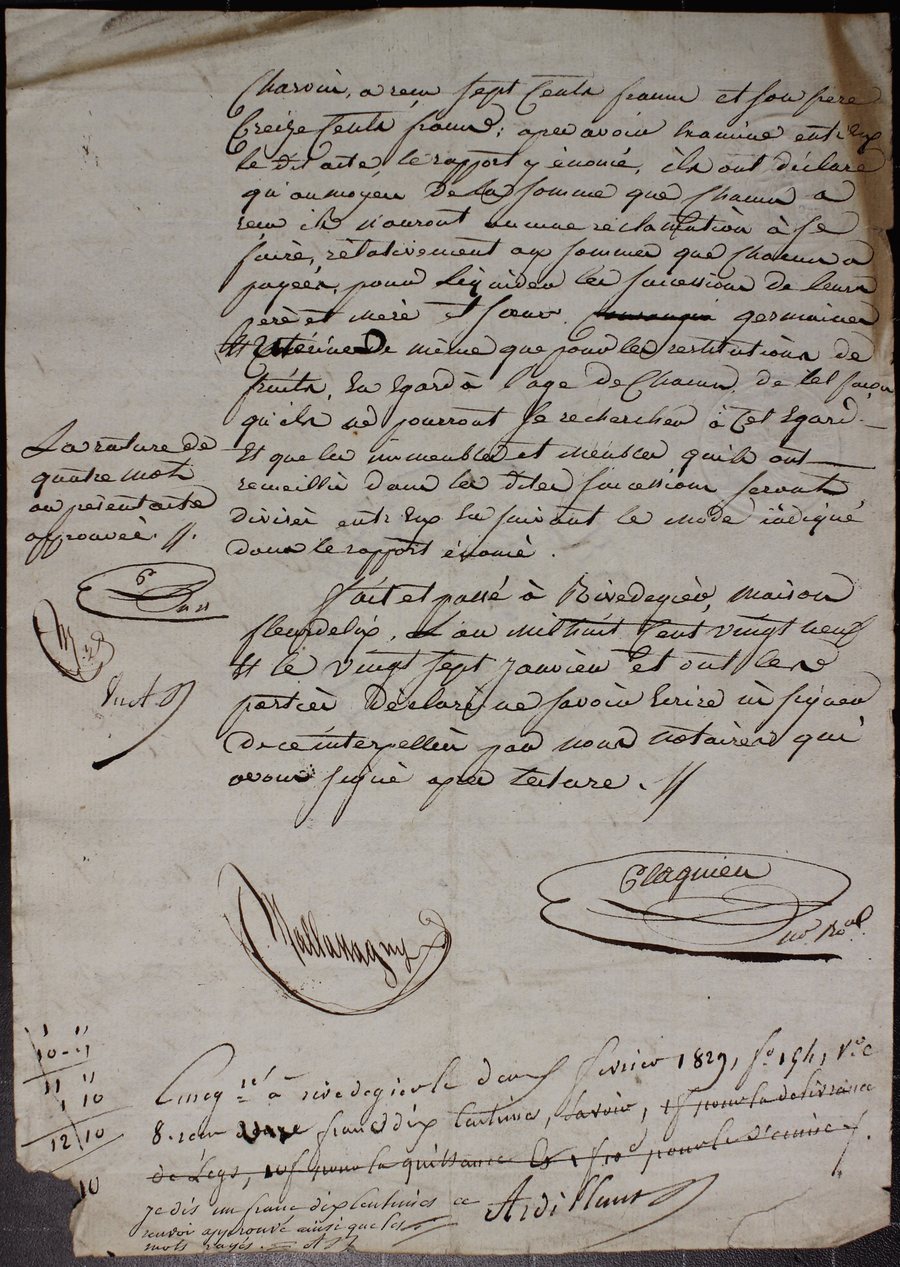 Charvin, a reçu sept Cents francs et son frere
Treize Cents francs; apres avoir examiné entr'eux
le dit acte, le rapport y énoncé, ils ont déclaré
qu'au moyen de la somme que chacun a
reçu ils n'auront aucune réclamation à se
faire, rélativement aux sommes que chacun a
payées, pour liquider les successions de leurs
peré et meré et sœur germaines
et utérine de même que pour les restitutions de
fruits, Eu Egard à l'age de Chacun, de tel façon
qu'ils ne pourront se rechercher à Cet Egard
Et que les immeubles et meubles qu'ils ont
recueillis dans les dites successions seront
divisés entr'eux en suivant le mode indiqué
dans le rapport énoncé.
La rature de
quatre mots
au présent acte
approuvée. //.
Fait et passé à Rivedegier, maison
fleurdelix, L'an mil huit Cent vingt neuf
Et le vingt sept janvier et ont les
parties déclaré ne savoir écrire ni signer
de ce interpellés par nous notaires qui
avons signé apres lecture. //
Mallassagny
Plagnieu
no. Roal.
10
11 11
1 10
12 10
10
Enregré à rivedegier le deux fevrier 1829, fo 194, Vo C
8. reçu franc dix Centimes, savoir, 1f pour la delivrance
de Legs, pour la quittance Et 1f 10c pour le Décime
je dis un franc dix Centimes ce
renvoi approuvé ainsi que les
mots rayés. A
Ardillant